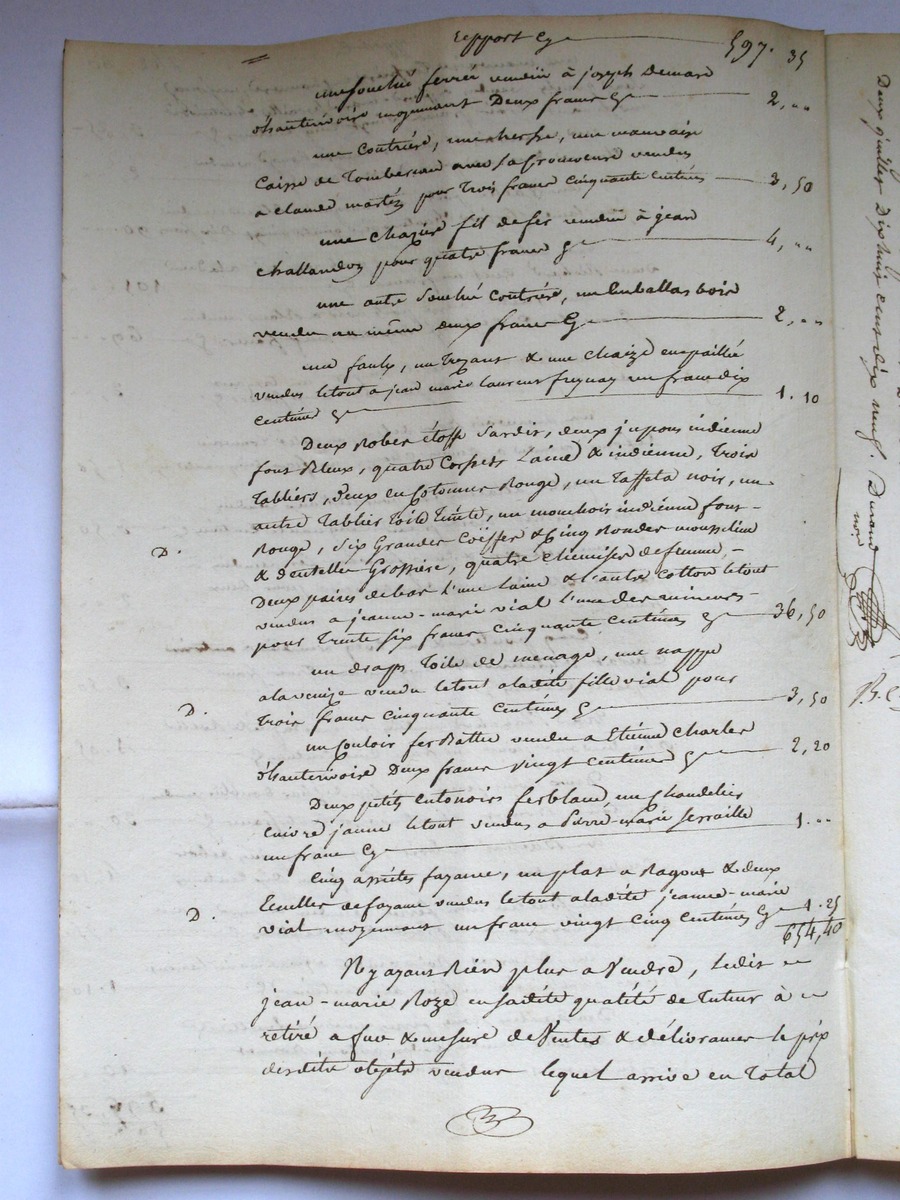 report Cy 597. 35
une souchié ferréé vendue à joseph Demare
d'hauterivoire moyennant Deux francs Cy 2, ""
une Coutriére, une herse, une mauvaise
Caisse de Tombereau avec sa
a claude pour Trois francs Cinquante Centimes 3, 50
une fil de fer vendue à jean
challandon pour quatre francs Cy 4, ""
une autre souchié Coutriére, un Emballas bois
vendu au même deux francs Cy 2, ""
une faulx, un & une Chaize empaillié
vendus letout a jean marie Laurens un franc dix
Centimes Cy 1. 10
Deux Robes étoffe deux jupons indienne
fonts Bleux, quatre Corsets Laine & indienne, Trois
Tabliers, deux en Cotonne Rouge, un Taffeta noir, un
autre Tablier Toile Teinte, un mouchois indienne font
Rouge, six Grandes Coiffes & Cinq Rondes moussline
D. & dentelle Grossière, quatre chemises de femme,
Deux paires de bas l'une laine & l'autre Cotton letout
vendus a jeanne-marie vial l'une des mineures
pour Trente six francs Cinquante Centimes Cy 36, 50
un drapt Toile de menage, une nappe
D. alavenize vendu letout aladite fille vial pour
Trois francs Cinquante Centimes Cy 3, 50
un Couloir fer Battu vendu a Etiénne Charles
d'hauterivoire Deux francs vingt Centimes Cy 2, 20
Deux petits entonoirs ferblanc, un Chandelier
Cuivre jaunne letout vendus a Pierre marie
un franc Cy 1. ""
Cinq assiétes fayance, un plat a Ragout & deux
D. Ecuelles de fayance vendus letout aladite jeanne-marie
vial moyennant un franc vingt Cinq Centimes Cy 1. 25
654, 40
N'y ayant Rien plus a Vendre, ledit
jean-marie Roze en sadite qualité de Tuteur à
retiré a fur & mesure de Ventes & délivrances le prix
desdits objets vendus lequel arrive en Total
Deux gailles Dix huit cent dix neuf.
Durand
noir